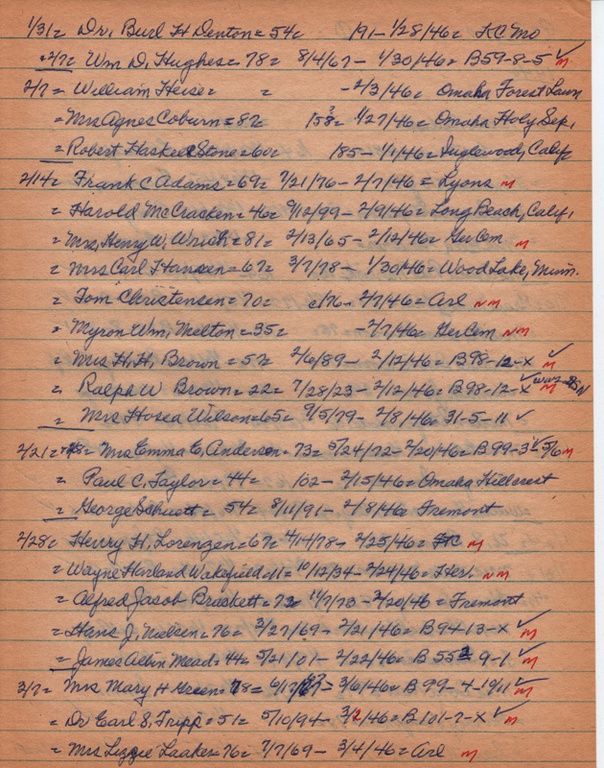 1/31= Dr. Burl H Denton= 54= 191- 1/28/46= KC Mo
2/7= Wm D. Hughes= 78= 8/4/67- 1/30/46= B59-8-5 ✓ M
2/7= William Heise= = -2/3/46= Omaha Forest Lawn
= Mrs Agnes Coburn=87= 158= 1/27/46= Omaha Holy Sep.
= Robert Haskell Stone=60= 185- 1/1/46= Inglewood, Calif
2/14= Frank C Adams=69= 7/21/76- 2/7/46= Lyons M
= Harold McCracken=46= 9/12/99- 2/9/46= Long Beach, Calif.
= Mrs. Henry W. Wrich=81= 2/13/65- 2/12/46= Her Cem M
= Mrs Carl Hansen=67= 3/7/78- 1/30/46= Wood Lake, Minn.
= Tom Christensen=70= c/76- 2/7/46= Arl NM
= Myron Wm. Melton=35= -2/7/46= Her Cem NM
= Mrs H. H. Brown=57= 2/6/89- 2/12/46= B98-12-X ✓ M
= Ralph W Brown=22= 7/28/23- 2/12/46= B98-12-X ✓ M WW2
= Mrs Hosea Wilson=65= 9/5/79- 2/8/46= 31-5-11 ✓
2/21= Mrs Emma C. Anderson=73= 5/24/72- 2/20/46= B99-3-5/6 ✓ M
= Paul C. Taylor=44= 102- 2/15/46= Omaha Hillcrest
= George Schuett= 54= 8/11/91- 2/8/46= Fremont
2/28= Henry H. Lorenzen=67= 4/14/78- 2/25/46= M
= Wayne Harland Wakefield=11= 10/12/34- 2/24/46= Her. NM
= Alfred Jacob Brackett=72= 11/7/73- 2/20/46= Fremont
= Hans J. Nielsen=76= 3/27/69- 2/21/46= B94-13-X ✓ M
= James Albin Mead=44= 5/21/01- 2/22/46= B 9-1 ✓ M
3/7= Mrs Mary H Green= 78= 6/17/67- 3/6/46= B99-4-10/11 ✓ M
= Dr Earl S. Tripp=51= 5/10/94- 3/2/46= B101-7-X ✓ M
= Mrs Lizzie Laaker=76= 7/7/69- 3/4/46= Arl M